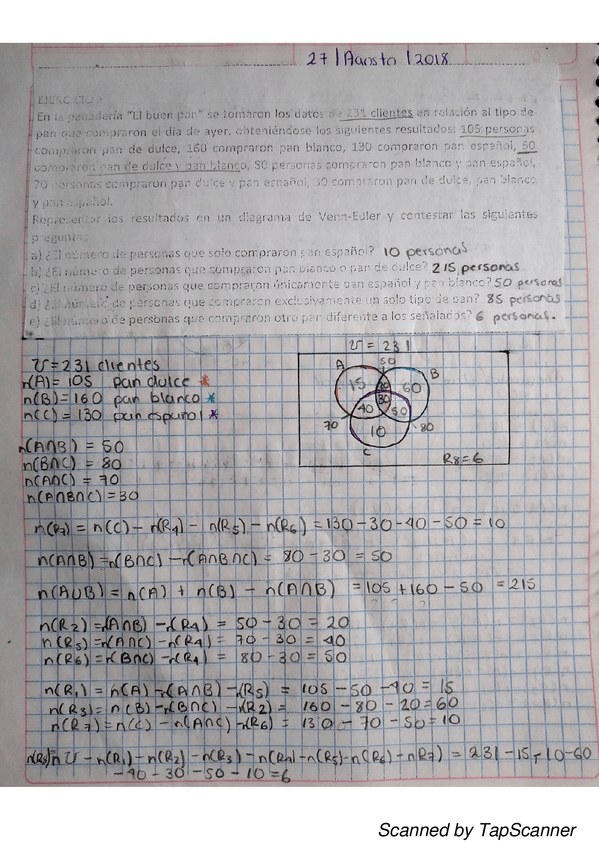 27 | Agosto | 2018
EJERCICIO 2
En la panadería "El buen pan" se tomaron los datos de 231 clientes en relación al tipo de
pan que compraron el día de ayer, obteniéndose los siguientes resultados: 105 personas
compraron pan de dulce, 160 compraron pan blanco, 130 compraron pan español, 50
compraron pan de dulce y pan blanco, 80 personas compraron pan blanco y pan español,
70 personas compraron pan dulce y pan español, 30 compraron pan de dulce, pan blanco
y pan español.
Representar los resultados en un diagrama de Venn-Euler y contestar las siguientes
preguntas
a) ¿El número de personas que solo compraron pan español? 10 personas
b) ¿El número de personas que compraron pan blanco o pan de dulce? 215 personas
c) ¿El número de personas que compraron únicamente pan español y pan blanco? 50 personas
d) ¿El número de personas que compraron exclusivamente un solo tipo de pan? 85 personas
e) ¿El número de personas que compraron otro pan diferente a los señalados? 6 personas.
U = 231
U = 231 clientes
n(A) = 105 pan dulce *
n(B) = 160 pan blanco *
n(C) = 130 pan español *
A
50
B
15
60
30
40
50
70
10
80
C
R8 = 6
n(A∩B) = 50
n(B∩C) = 80
n(A∩C) = 70
n(A∩B∩C) = 30
n(R7) = n(C) - n(R4) - n(R5) - n(R6) = 130 - 30 - 40 - 50 = 10
n(A∩B) = n(B∩C) - n(A∩B∩C) = 80 - 30 = 50
n(A∪B) = n(A) + n(B) - n(A∩B) = 105 + 160 - 50 = 215
n(R2) = n(A∩B) - n(R4) = 50 - 30 = 20
n(R5) = n(A∩C) - n(R4) = 70 - 30 = 40
n(R6) = n(B∩C) - n(R4) = 80 - 30 = 50
n(R1) = n(A) - n(A∩B) - n(R5) = 105 - 50 - 40 = 15
n(R3) = n(B) - n(B∩C) - n(R2) = 160 - 80 - 20 = 60
n(R7) = n(C) - n(A∩C) - n(R6) = 130 - 70 - 50 = 10
n(R8) = n U - n(R1) - n(R2) - n(R3) - n(R4) - n(R5) - n(R6) - n(R7) = 231 - 15 - 10 - 60
- 40 - 30 - 50 - 10 = 6
Scanned by TapScanner